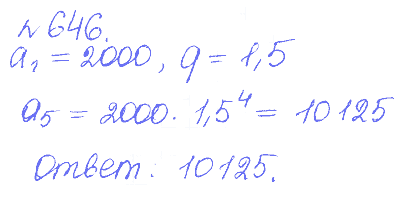 № 646.
a₁ = 2000, q = 1,5
a₅ = 2000 · 1,5⁴ = 10125
Ответ: 10125.